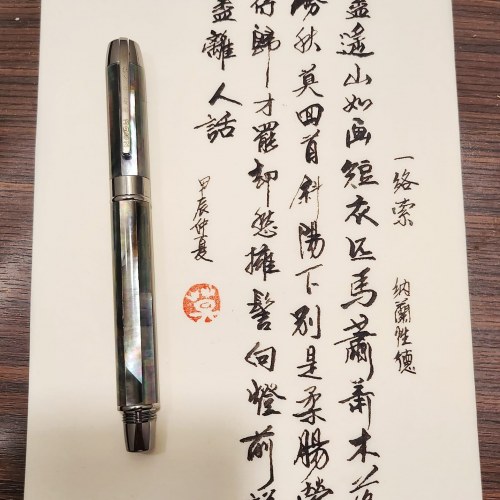 一络索 納蘭性德
盡遙山如画短衣匹馬蕭蕭木落
勝秋莫回首斜陽下別是柔腸縈
待歸才罷却愁擁髻向燈前說
盡離人話
甲辰仲夏